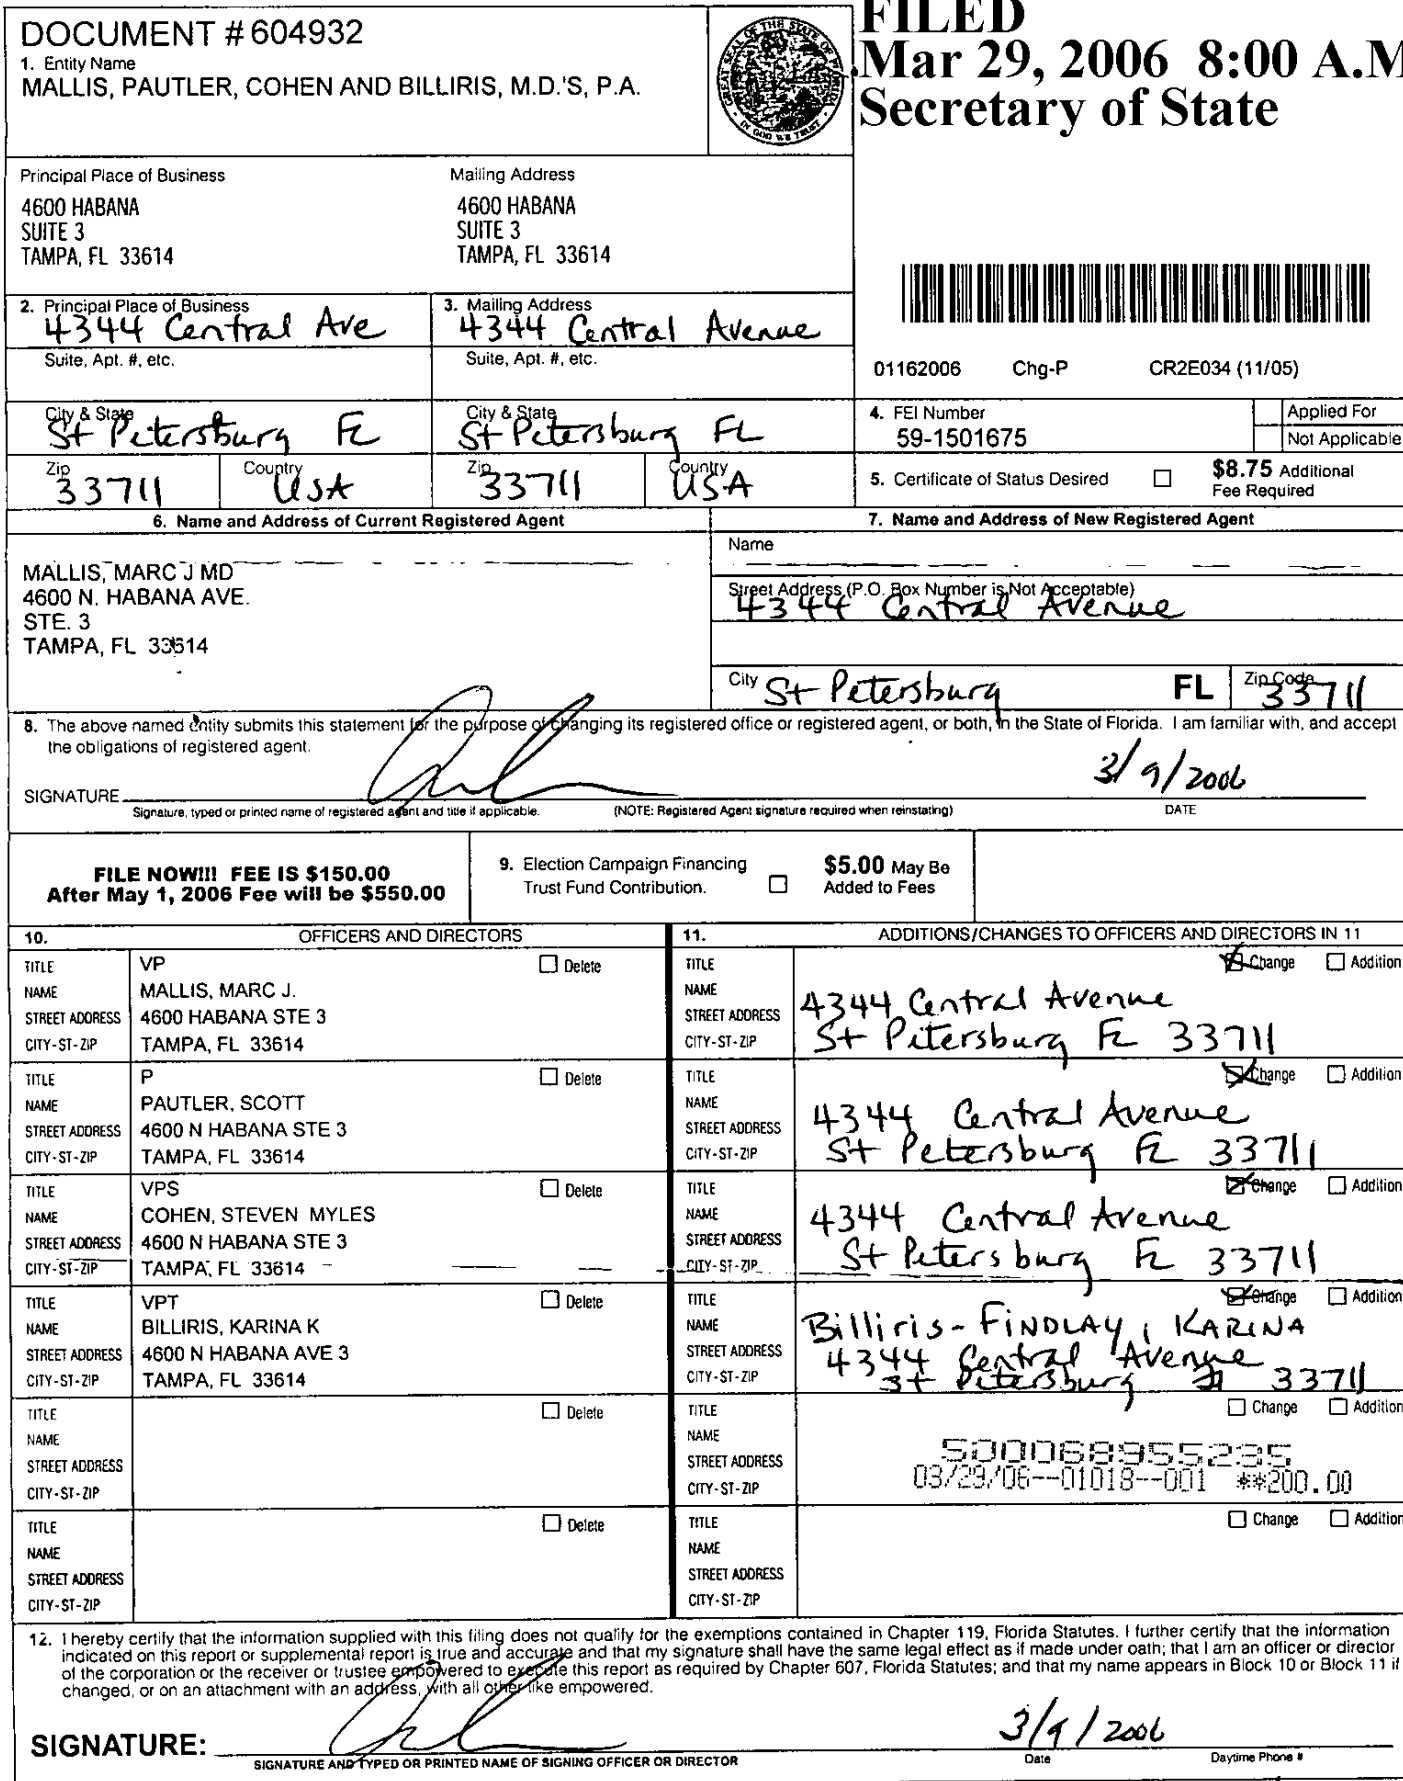 DOCUMENT # 604932
1. Entity Name
MALLIS, PAUTLER, COHEN AND BILLIRIS, M.D.'S, P.A.
GREAT SEAL OF THE STATE OF FLORIDA
IN GOD WE TRUST
FILED
Mar 29, 2006 8:00 A.M
Secretary of State
Principal Place of Business
4600 HABANA
SUITE 3
TAMPA, FL 33614
Mailing Address
4600 HABANA
SUITE 3
TAMPA, FL 33614
2. Principal Place of Business
4344 Central Ave
Suite, Apt. #, etc.
City & State
St Petersburg FL
Zip
33711
Country
USA
3. Mailing Address
4344 Central Avenue
Suite, Apt. #, etc.
City & State
St Petersburg FL
Zip
33711
Country
USA
01162006 Chg-P CR2E034 (11/05)
4. FEI Number
59-1501675
Applied For
Not Applicable
5. Certificate of Status Desired
$8.75 Additional
Fee Required
6. Name and Address of Current Registered Agent
MALLIS, MARC J MD
4600 N. HABANA AVE.
STE. 3
TAMPA, FL 33614
7. Name and Address of New Registered Agent
Name
Street Address (P.O. Box Number is Not Acceptable)
4344 Central Avenue
City St Petersburg FL Zip Code 33711
8. The above named entity submits this statement for the purpose of changing its registered office or registered agent, or both, in the State of Florida. I am familiar with, and accept
the obligations of registered agent.
3/9/2006
SIGNATURE
Signature, typed or printed name of registered agent and title if applicable. (NOTE: Registered Agent signature required when reinstating) DATE
FILE NOW!!! FEE IS $150.00
After May 1, 2006 Fee will be $550.00
9. Election Campaign Financing
Trust Fund Contribution.
$5.00 May Be
Added to Fees
10. OFFICERS AND DIRECTORS
11. ADDITIONS/CHANGES TO OFFICERS AND DIRECTORS IN 11
TITLE VP Delete
NAME MALLIS, MARC J.
STREET ADDRESS 4600 HABANA STE 3
CITY-ST-ZIP TAMPA, FL 33614
TITLE Change Addition
NAME
STREET ADDRESS 4344 Central Avenue
CITY-ST-ZIP St Petersburg FL 33711
TITLE P Delete
NAME PAUTLER, SCOTT
STREET ADDRESS 4600 N HABANA STE 3
CITY-ST-ZIP TAMPA, FL 33614
TITLE Change Addition
NAME
STREET ADDRESS 4344 Central Avenue
CITY-ST-ZIP St Petersburg FL 33711
TITLE VPS Delete
NAME COHEN, STEVEN MYLES
STREET ADDRESS 4600 N HABANA STE 3
CITY-ST-ZIP TAMPA, FL 33614
TITLE Change Addition
NAME
STREET ADDRESS 4344 Central Avenue
CITY-ST-ZIP St Petersburg FL 33711
TITLE VPT Delete
NAME BILLIRIS, KARINA K
STREET ADDRESS 4600 N HABANA AVE 3
CITY-ST-ZIP TAMPA, FL 33614
TITLE Change Addition
NAME Billiris-FINDLAY, KARINA
STREET ADDRESS 4344 Central Avenue
CITY-ST-ZIP St Petersburg Fl 33711
TITLE Delete
NAME
STREET ADDRESS
CITY-ST-ZIP
TITLE Change Addition
NAME
STREET ADDRESS
CITY-ST-ZIP
500068955235
03/29/06--01018--001 **200.00
TITLE Delete
NAME
STREET ADDRESS
CITY-ST-ZIP
TITLE Change Addition
NAME
STREET ADDRESS
CITY-ST-ZIP
12. I hereby certify that the information supplied with this filing does not qualify for the exemptions contained in Chapter 119, Florida Statutes. I further certify that the information
indicated on this report or supplemental report is true and accurate and that my signature shall have the same legal effect as if made under oath; that I am an officer or director
of the corporation or the receiver or trustee empowered to execute this report as required by Chapter 607, Florida Statutes; and that my name appears in Block 10 or Block 11 if
changed, or on an attachment with an address, with all other like empowered.
3/9/2006
SIGNATURE:
SIGNATURE AND TYPED OR PRINTED NAME OF SIGNING OFFICER OR DIRECTOR Date Daytime Phone #